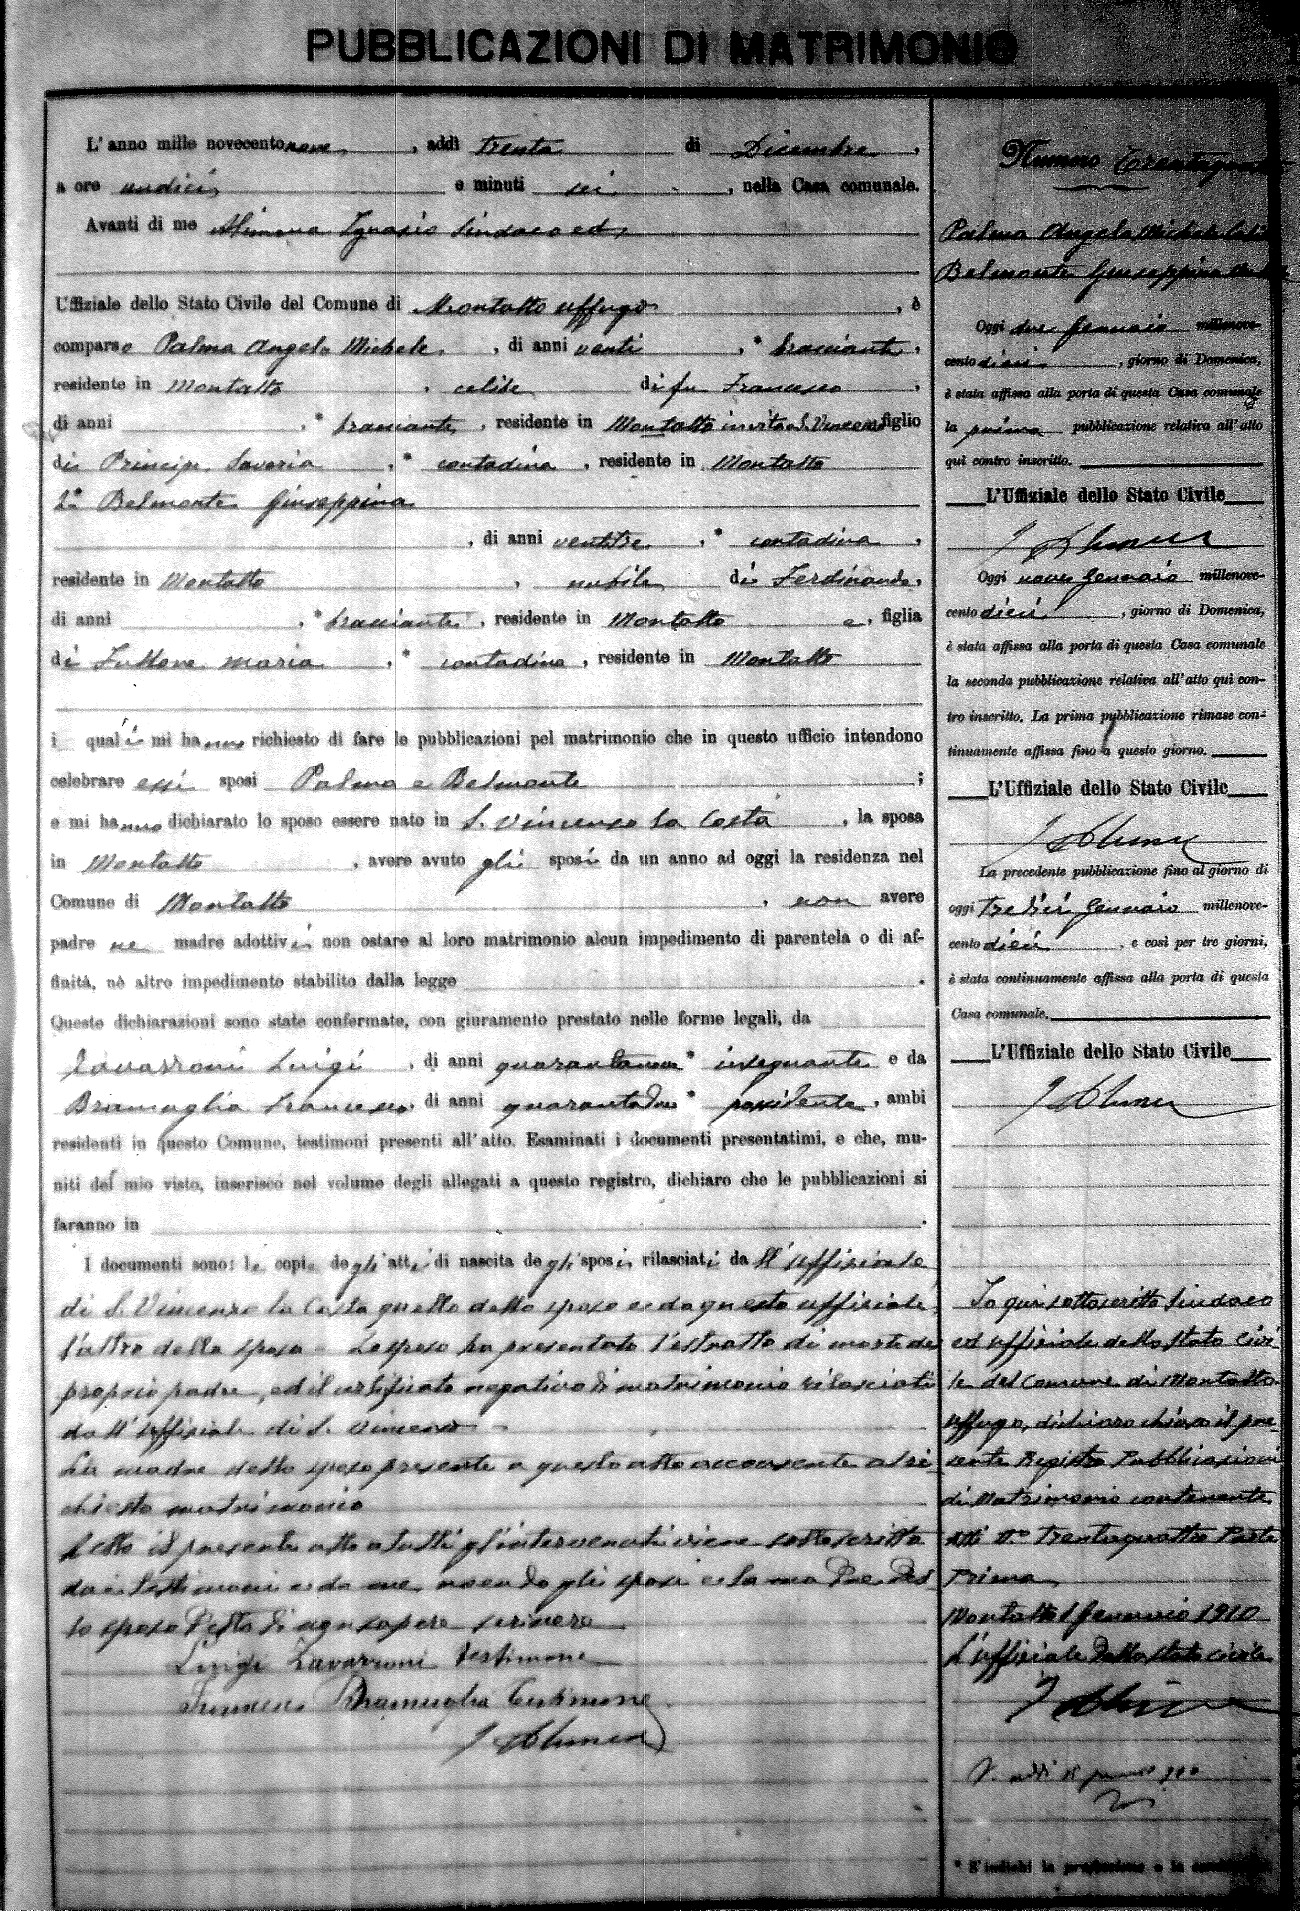 PUBBLICAZIONI DI MATRIMONIO
L'anno mille novecento nove, addì trenta di Dicembre,
a ore undici e minuti sei, nella Casa comunale.
Avanti di me Alimena Ignazio Sindaco ed
Uffiziale dello Stato Civile del Comune di Montalto Uffugo, è
comparso Palma Angelo Michele, di anni venti, * bracciante,
residente in Montalto, celibe di fu Francesco,
di anni , * bracciante, residente in Montalto S. Vincenzo figlio
di Principe Saveria, * contadina, residente in Montalto
2° Belmonte Giuseppina
, di anni ventitre, * contadina,
residente in Montalto, nubile di Ferdinando,
di anni , * bracciante, residente in Montalto e, figlia
di maria, * contadina, residente in Montalto
i quali mi hanno richiesto di fare le pubblicazioni pel matrimonio che in questo ufficio intendono
celebrare essi sposi Palma e Belmonte ;
e mi hanno dichiarato lo sposo essere nato in S. Vincenzo la Costa, la sposa
in Montalto, avere avuto gli sposi da un anno ad oggi la residenza nel
Comune di Montalto, non avere
padre ne madre adottivi non ostare al loro matrimonio alcun impedimento di parentela o di af-
finità, nè altro impedimento stabilito dalla legge .
Queste dichiarazioni sono state confermate, con giuramento prestato nelle forme legali, da
Zavarroni Luigi, di anni * insegnante e da
Bramuglia Francesco, di anni quarantadue * possidente, ambi
residenti in questo Comune, testimoni presenti all'atto. Esaminati i documenti presentatimi, e che, mu-
niti del mio visto, inserisco nel volume degli allegati a questo registro, dichiaro che le pubblicazioni si
faranno in .
I documenti sono: le copie degli atti di nascita degli sposi, rilasciati dall'uffiziale
di S. Vincenzo la Costa quello dello sposo e da questo uffiziale
l'altro della sposa - Lo sposo ha presentato l'estratto di morte del
proprio padre, ed il certificato negativo di matrimonio rilasciati
dall'uffiziale di S. Vincenzo -
La madre dello sposo presente a questo atto acconsente al ri-
chiesto matrimonio
Letto il presente atto a tutti gl'intervenuti viene sottoscritto
dai testimoni e da me, avendo gli sposi e la madre del
lo sposo detto di non sapere scrivere
Luigi Zavarroni testimone
Francesco Bramuglia testimone
I Alimena
Numero
Palma Angelo Michele
Belmonte Giuseppina
Oggi due Gennaio millenove-
cento dieci, giorno di Domenica,
è stata affissa alla porta di questa Casa comunale
la prima pubblicazione relativa all'atto
qui contro inscritto.
L'Uffiziale dello Stato Civile
I Alimena
Oggi nove Gennaio millenove-
cento dieci, giorno di Domenica,
è stata affissa alla porta di questa Casa comunale
la seconda pubblicazione relativa all'atto quì con-
tro inscritto. La prima pubblicazione rimase con-
tinuamente affissa fino a questo giorno.
L'Uffiziale dello Stato Civile
I Alimena
La precedente pubblicazione fino al giorno di
oggi tredici Gennaio millenove-
cento dieci, e così per tre giorni,
è stata continuamente affissa alla porta di questa
Casa comunale.
L'Uffiziale dello Stato Civile
I Alimena
Io qui sottoscritto Sindaco
ed uffiziale dello Stato Civi
le del Comune di Montalto
Uffugo, dichiaro chiuso il pre-
sente Registro Pubblicazioni
di Matrimonio contenente
atti N.° trentaquattro Parte
Prima
Montalto 1 Gennaio 1910
L'uffiziale dello stato civile
I Alimena
* S'indichi la professione o la condizione.